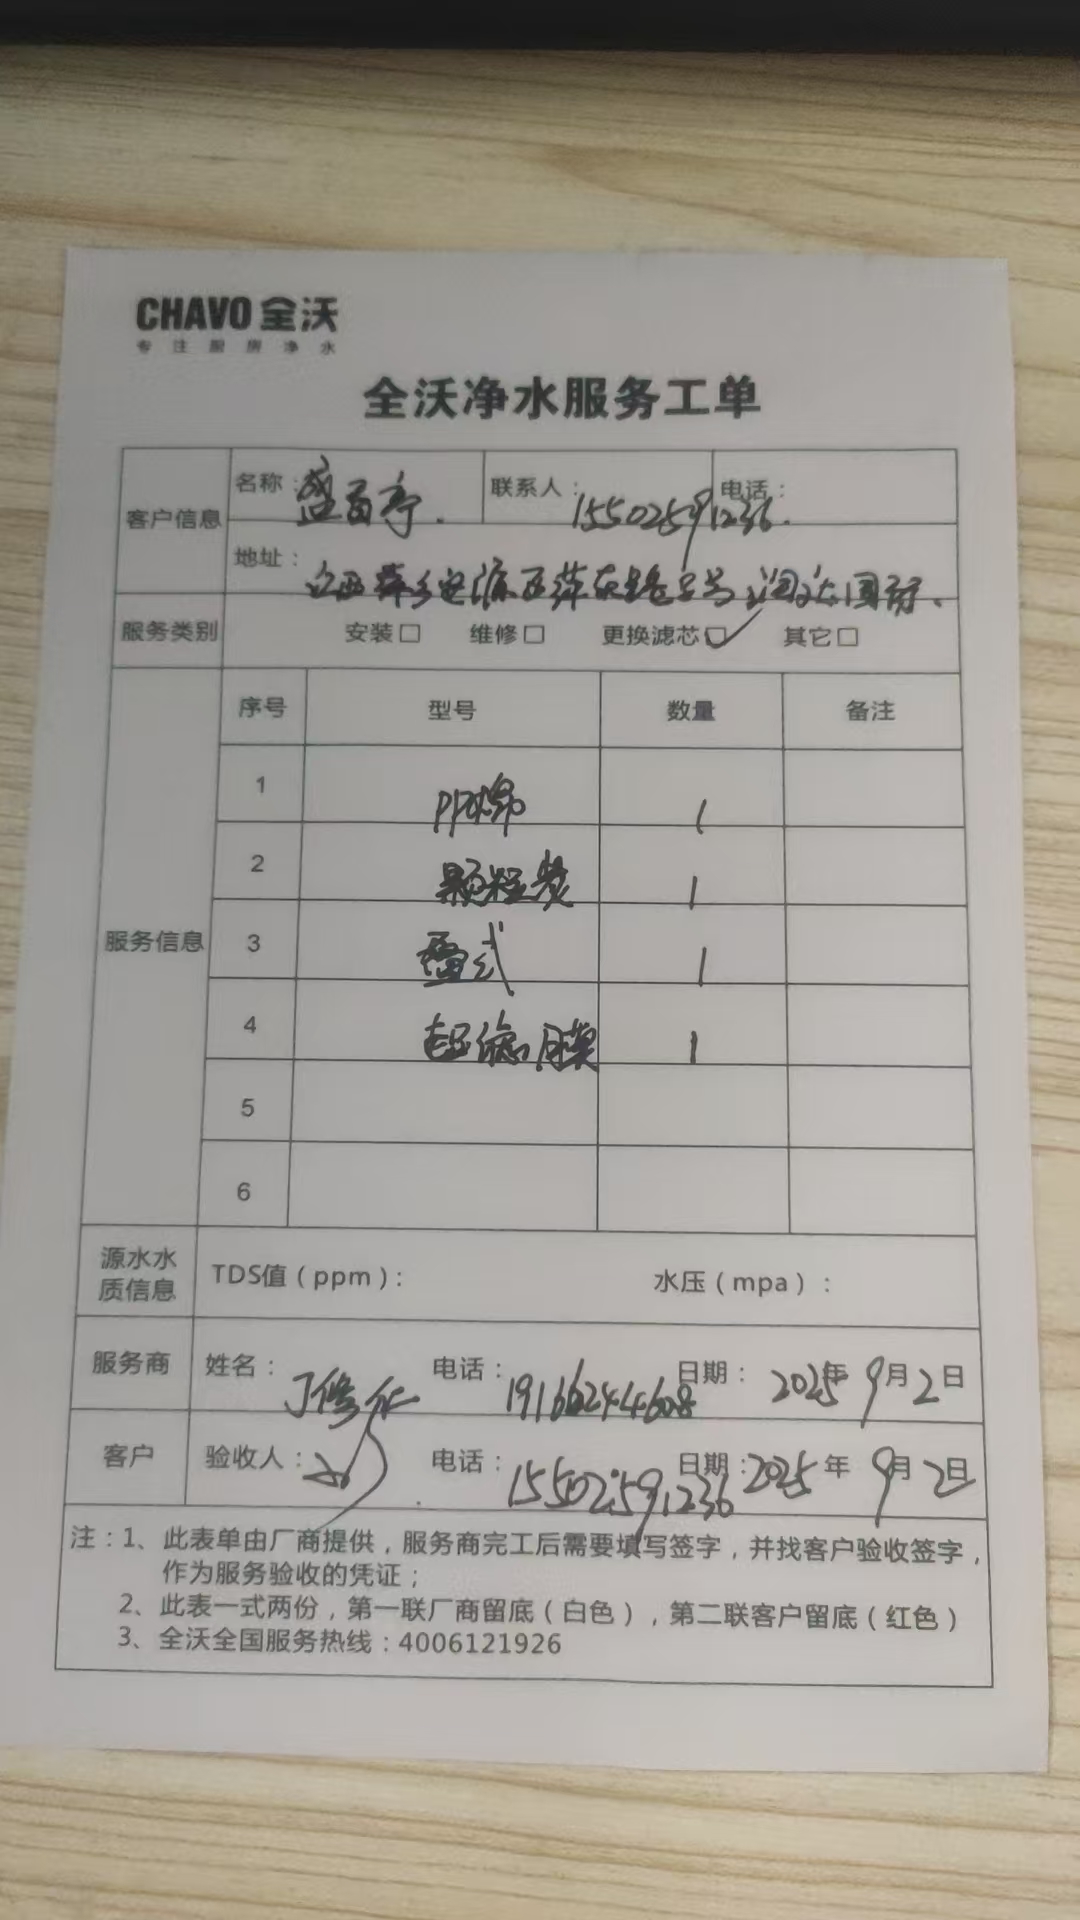 CHAVO 全沃
专注厨房净水
全沃净水服务工单
客户信息
名称：盛百亭. 联系人： 电话：
15502591236.
地址：江西萍乡安源区萍安路 号润达国际.
服务类别 安装□ 维修□ 更换滤芯□✓ 其它□
服务信息
序号 型号 数量 备注
1 PP棉 1
2 颗粒炭 1
3 叠式 1
4 超滤膜 1
5
6
源水水质信息 TDS值（ppm）： 水压（mpa）：
服务商 姓名： 丁修 电话：19166244608 日期：2025年9月2日
客户 验收人： 电话：15502591236 日期：2025年9月2日
注：1、此表单由厂商提供，服务商完工后需要填写签字，并找客户验收签字，
作为服务验收的凭证；
2、此表一式两份，第一联厂商留底（白色），第二联客户留底（红色）
3、全沃全国服务热线：4006121926